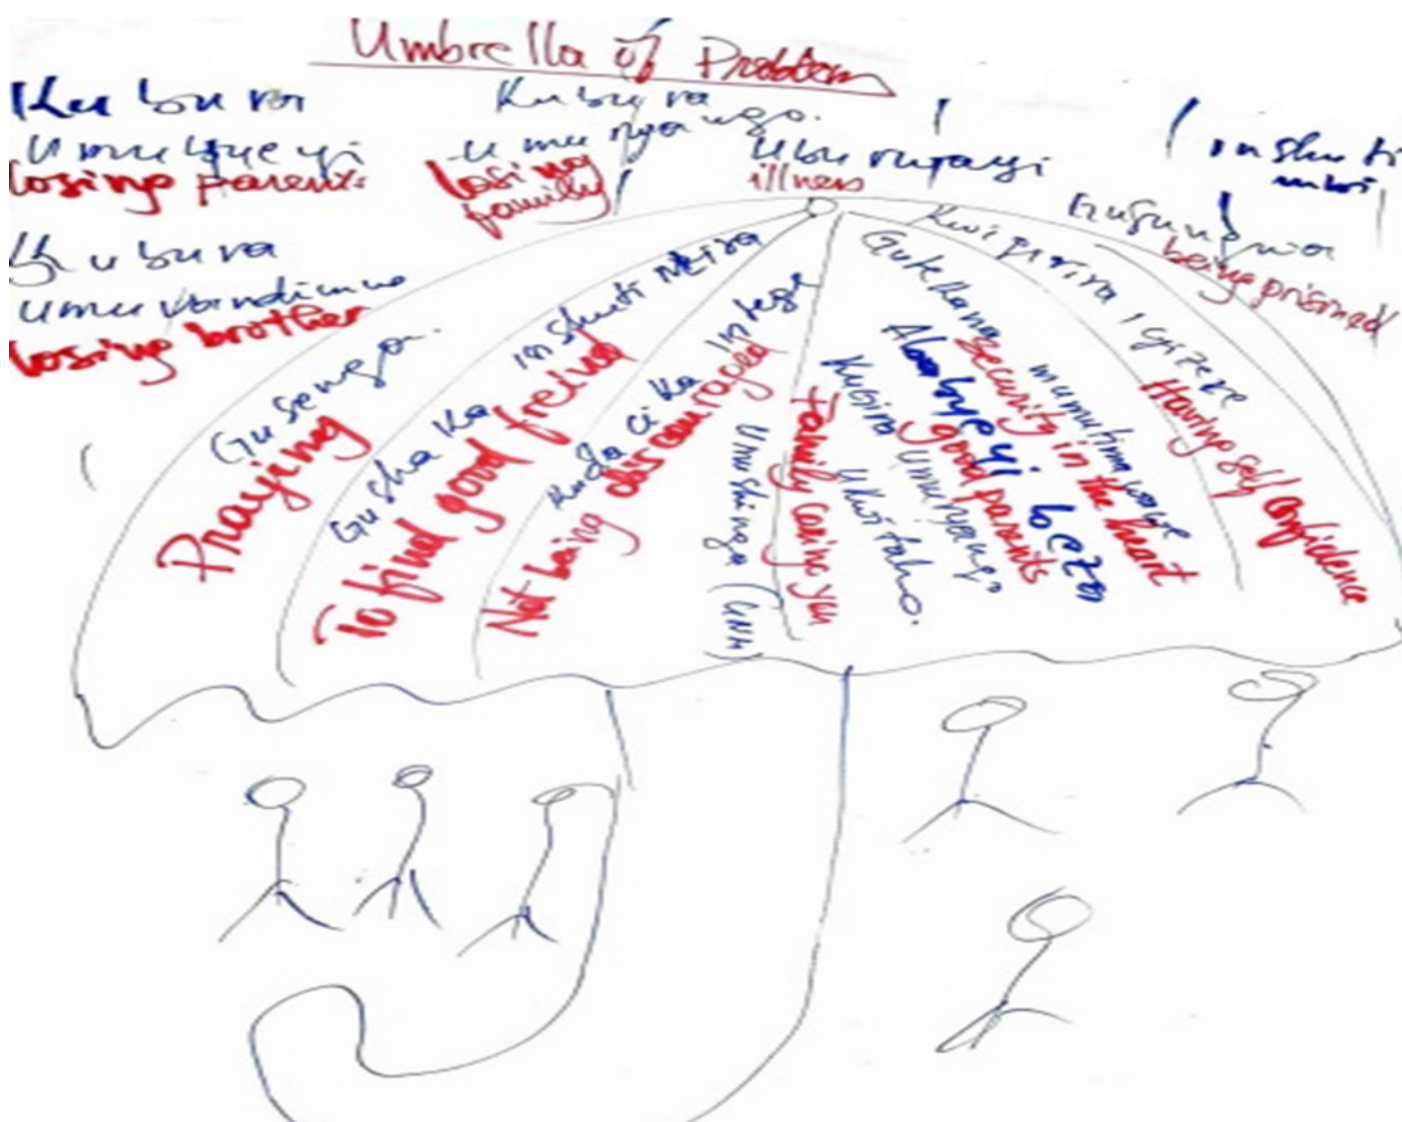 Umbrella of Problem
Kubura
umubyeyi
losing parents
Kubura
umuryango.
losing
family
Uburwayi
illness
inshuti
mbi
Kubura
umuvandimwe
losing brother
Gufungwa
being prisoned
Gusenga.
Praying
Gushaka inshuti nziza
To find good freind
Kudacika intege
Not being discouraged
Umushinga (UNM)
Family caring you
Kugira umuryango
ukwitaho.
Ababyeyi beza
good parents
Gutekana mumutima wawe
security in the heart
Kwigirira icyizere
Having self confidence